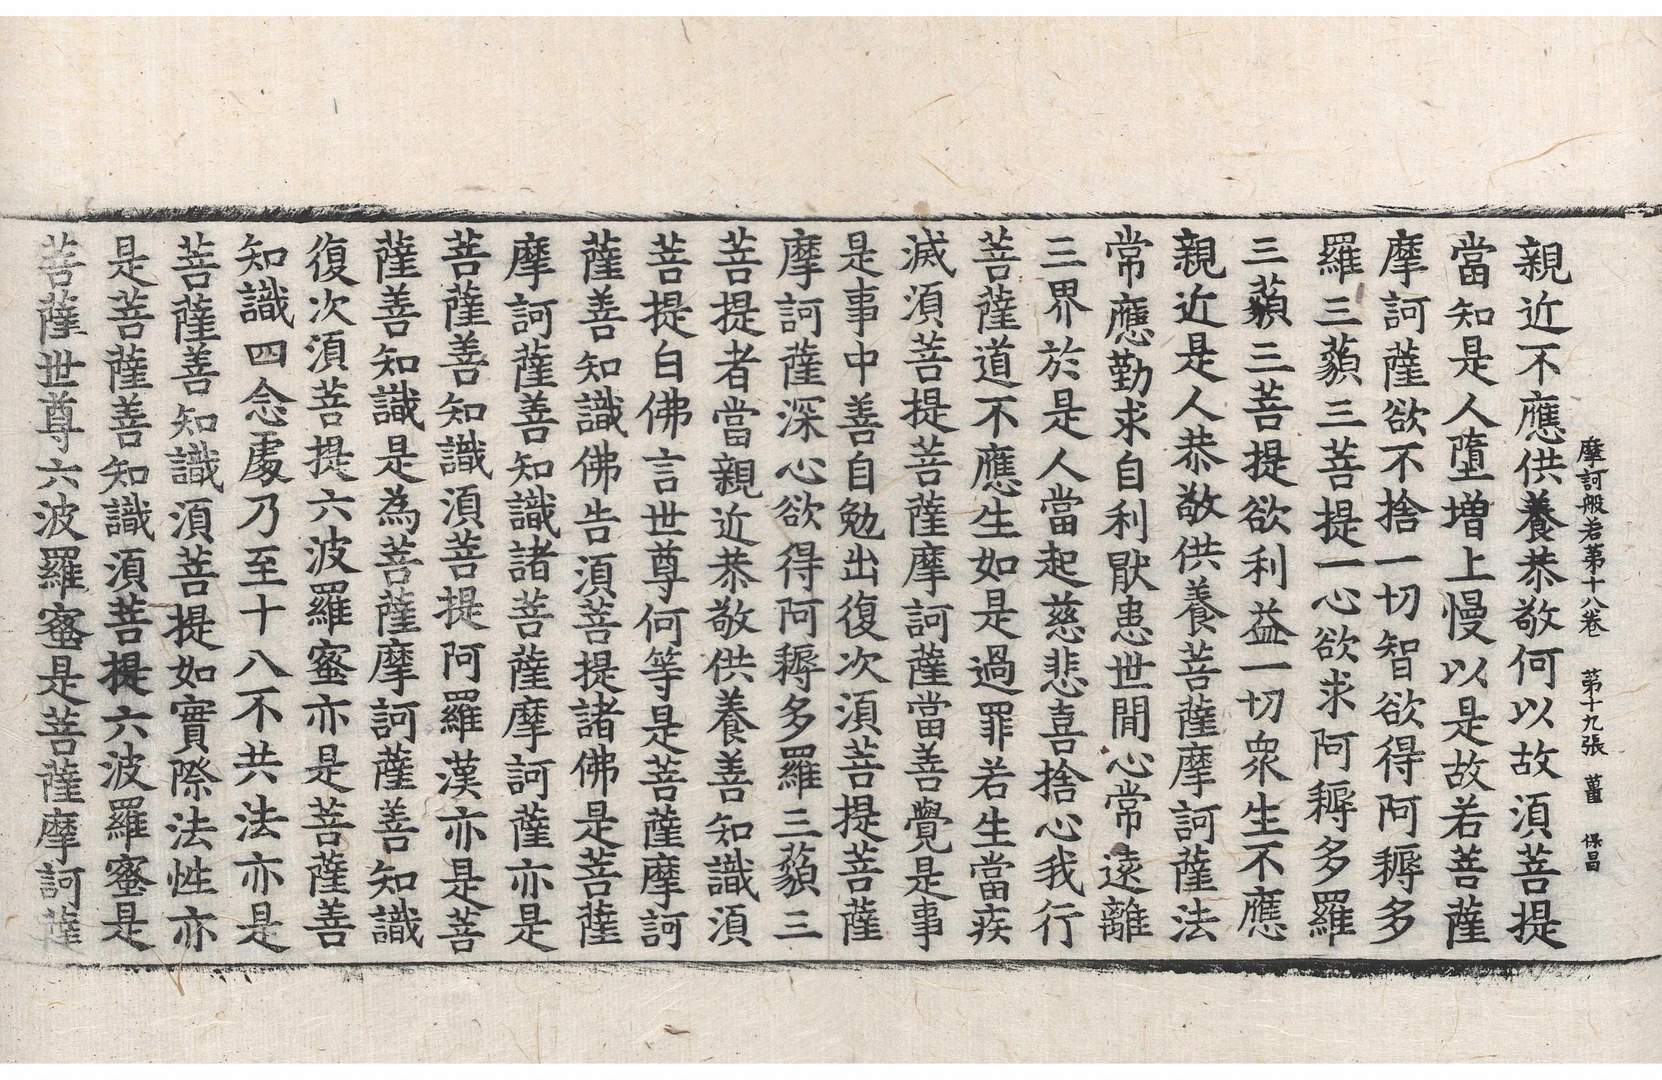 摩訶般若第十八卷 第十九張 薑 保昌
親近不應供養恭敬何以故須菩提
當知是人墮增上慢以是故若菩薩
摩訶薩欲不捨一切智欲得阿耨多
羅三藐三菩提一心欲求阿耨多羅
三藐三菩提欲利益一切衆生不應
親近是人恭敬供養菩薩摩訶薩法
常應勤求自利猒患世閒心常遠離
三界於是人當起慈悲喜捨心我行
菩薩道不應生如是過罪若生當疾
滅須菩提菩薩摩訶薩當善覺是事
是事中善自勉出復次須菩提菩薩
摩訶薩深心欲得阿耨多羅三藐三
菩提者當親近恭敬供養善知識須
菩提白佛言世尊何等是菩薩摩訶
薩善知識佛告須菩提諸佛是菩薩
摩訶薩善知識諸菩薩摩訶薩亦是
菩薩善知識須菩提阿羅漢亦是菩
薩善知識是為菩薩摩訶薩善知識
復次須菩提六波羅蜜亦是菩薩善
知識四念處乃至十八不共法亦是
菩薩善知識須菩提如實際法性亦
是菩薩善知識須菩提六波羅蜜是
菩薩世尊六波羅蜜是菩薩摩訶薩